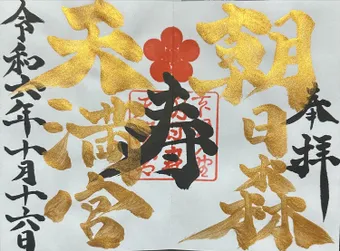 奉拝
朝日森
天満宮
寿
令和六年十月十六日